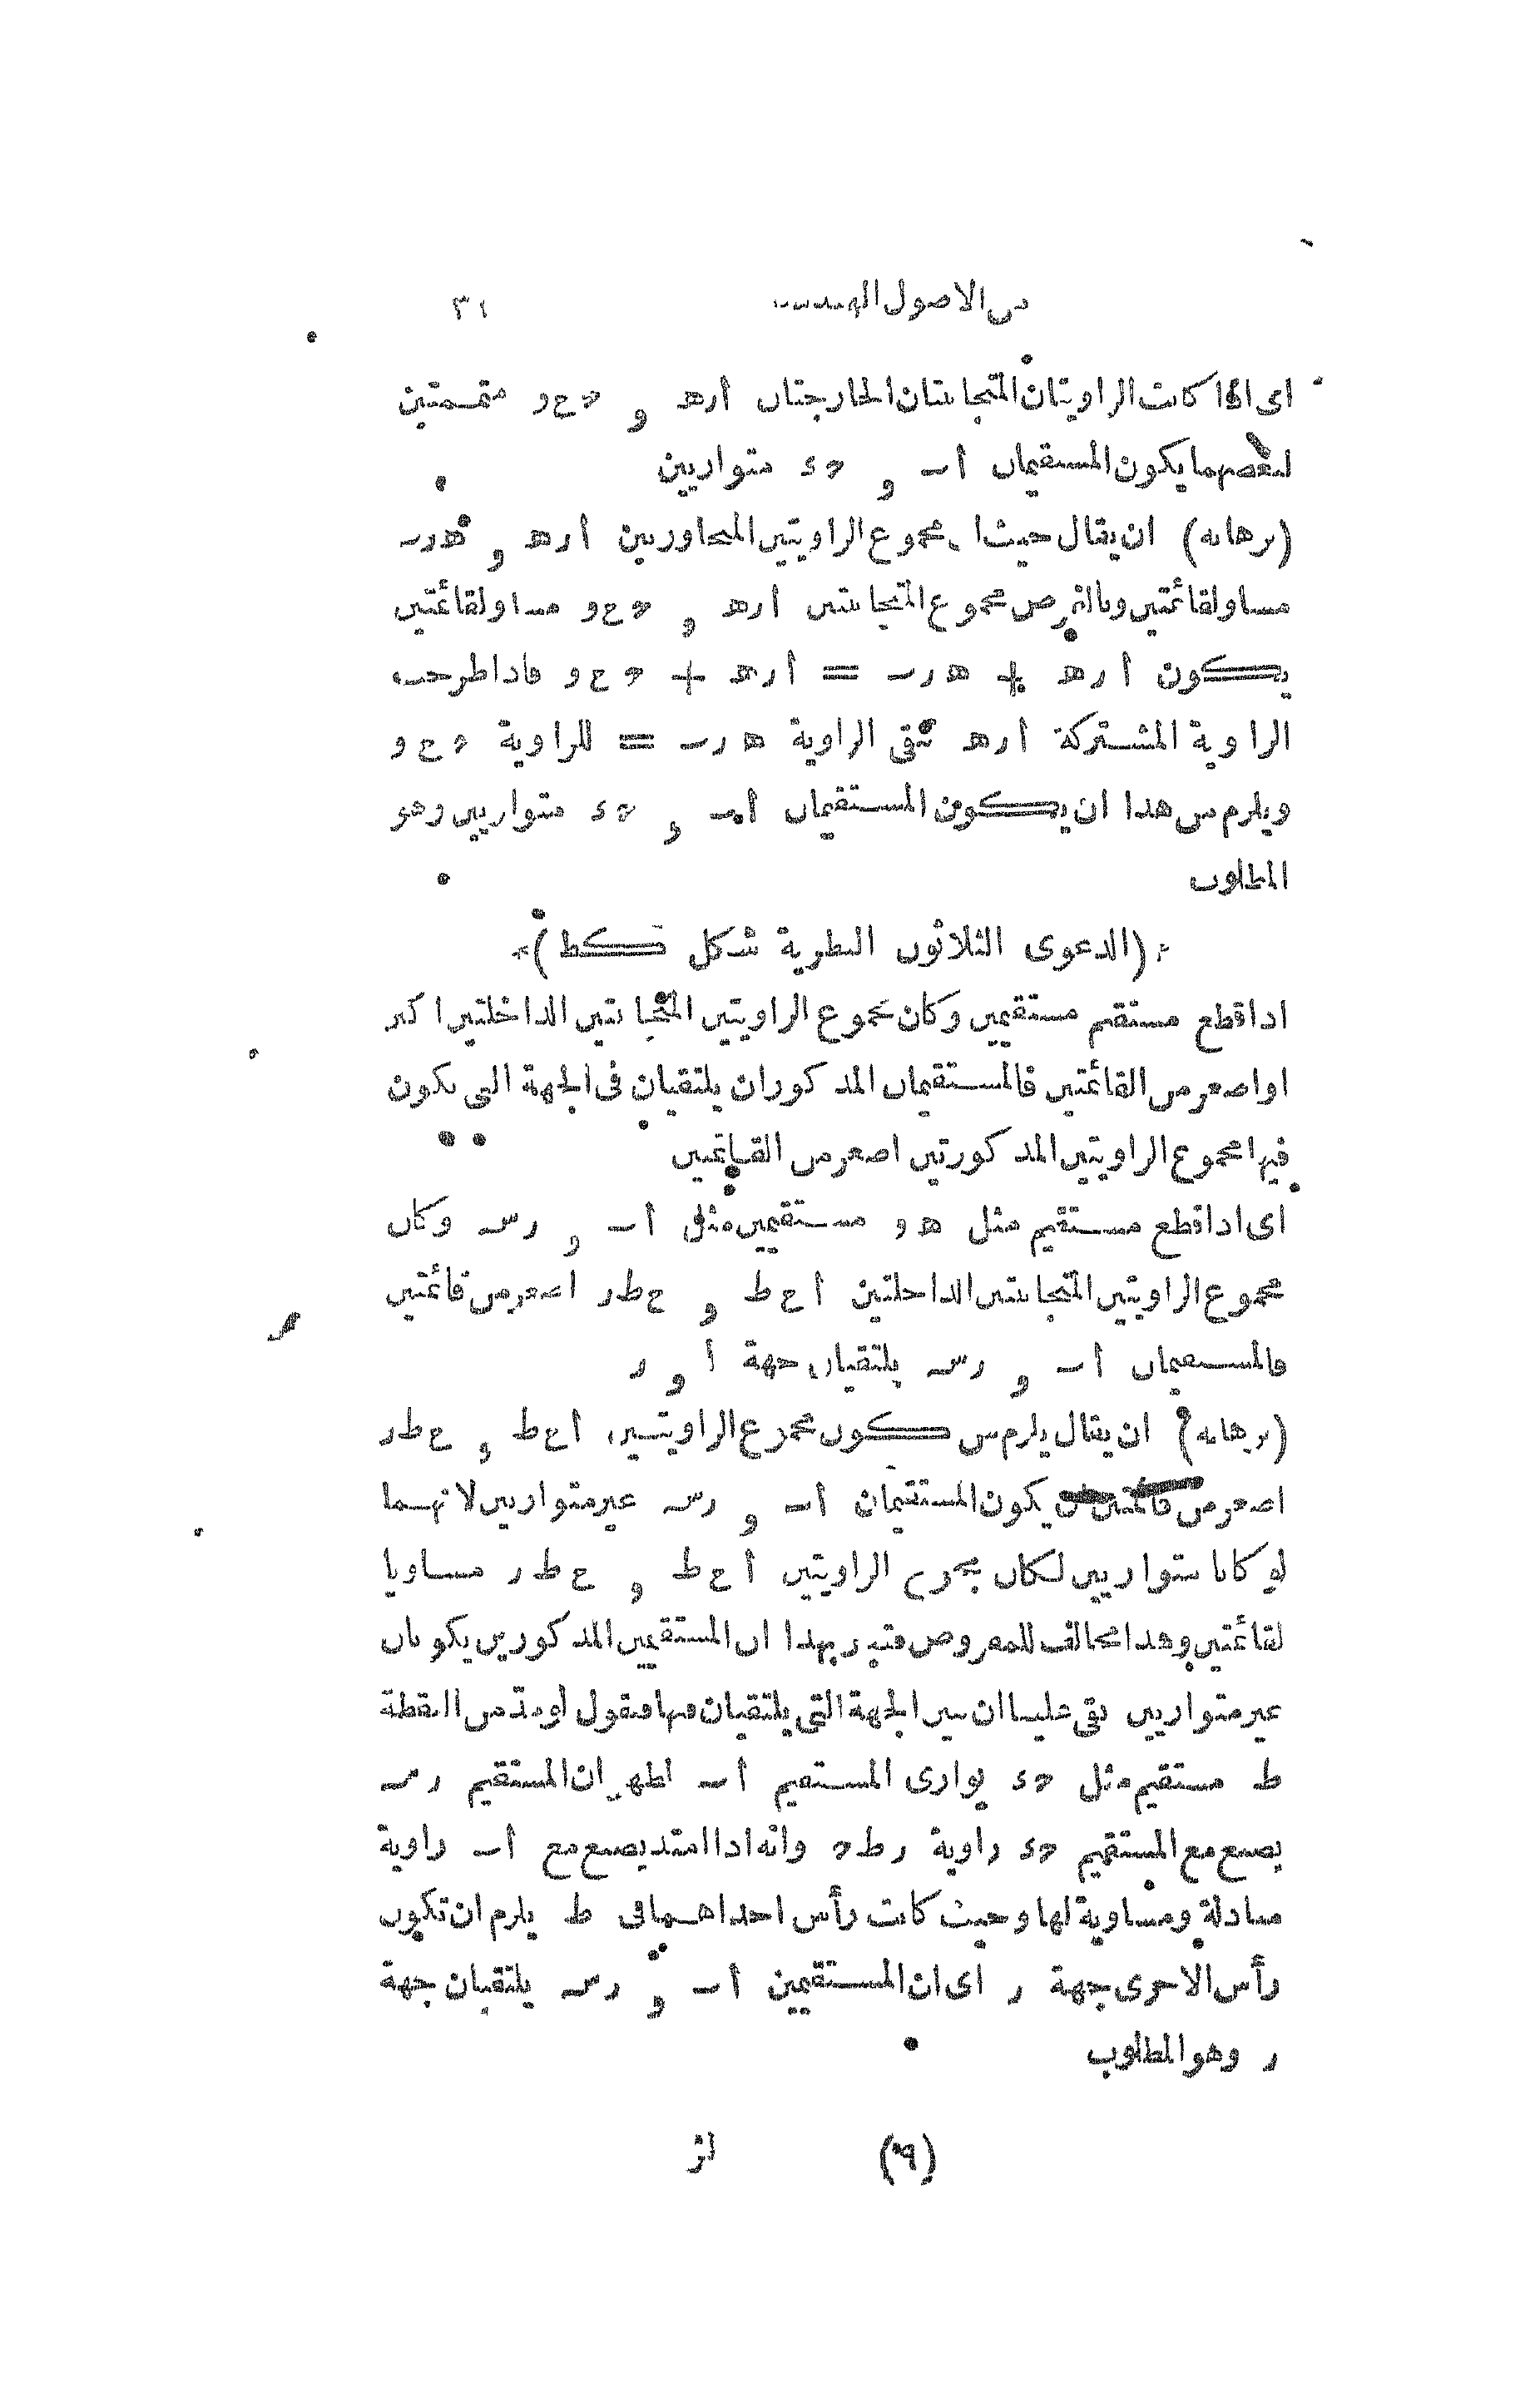 من الاصول الهندسية ٣١
اى اذا كانت الزاويتان المتجانبتان الخارجتان أ ر ه و ح ع و متممتين
لبعضهما يكون المستقيمان أ ب و ح د متوازيين
(برهانه) ان يقال حيث ان مجموع الزاويتين المتجاورتين أ ر ه و ه ر ب
مساو لقائمتين وبالفرض مجموع المتجانبتين أ ر ه و ح ع و مساو لقائمتين
يكون أ ر ه + ه ر ب = أ ر ه + ح ع و فاذا طرحت
الزاوية المشتركة أ ر ه تبقى الزاوية ه ر ب = للزاوية ح ع و
ويلزم من هذا ان يكون المستقيمان أ ب و ح د متوازيين وهو
المطلوب
(الدعوى الثلاثون النظرية شكل كط)
اذا قطع مستقيم مستقيمين وكان مجموع الزاويتين المتجانبتين الداخلتين اكبر
او اصغر من القائمتين فالمستقيمان المذكوران يلتقيان فى الجهة التى يكون
فيها مجموع الزاويتين المذكورتين اصغر من القائمتين
اى اذا قطع مستقيم مثل ه و مستقيمين مثل أ ب و ر س وكان
مجموع الزاويتين المتجانبتين الداخلتين أ ع ط و ع ط ر اصغر من قائمتين
فالمستقيمان أ ب و ر س يلتقيان جهة أ و ر
(برهانه) ان يقال يلزم من كون مجموع الزاويتين أ ع ط و ع ط ر
اصغر من قائمتين ان يكون المستقيمان أ ب و ر س غير متوازيين لانهما
لو كانا متوازيين لكان مجموع الزاويتين أ ع ط و ع ط ر مساويا
لقائمتين وهذا مخالف للمفروض فتبد ر بهذا ان المستقيمين المذكورين يكونان
غير متوازيين بقى علينا ان نبين الجهة التى يلتقيان فيها فنقول لو مد من النقطة
ط مستقيم مثل ح د يوازى المستقيم أ ب لظهر ان المستقيم ر س
يصنع مع المستقيم ح د زاوية ر ط ح وانه اذا امتد يصنع مع أ ب زاوية
مبادلة ومساوية لها وحيث كانت رأس احداهما فى ط يلزم ان تكون
رأس الاخرى جهة ر اى ان المستقيمين أ ب و ر س يلتقيان جهة
ر وهو المطلوب
(٩) لز